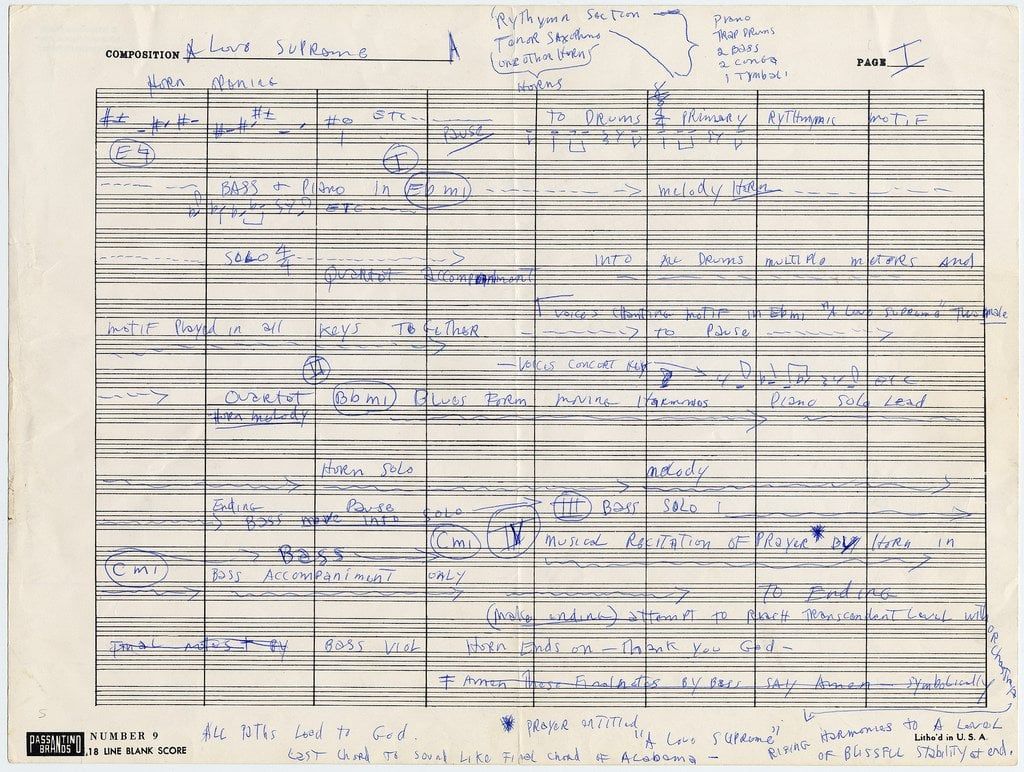 COMPOSITION A Love Supreme A
"Rythymn Section
Tenor Saxophone
(one other Horn)
Piano
TRAP DRUMS
2 BASS
2 Conga
1 Tymbali
PAGE I
Horn opening
HORNS
ETC
PAUSE
TO DRUMS PRIMARY RYTHMIC MOTIF
E♮
I
BASS + PIANO in Ebmi melody Horn
ETC
SOLO 4/4 INTO ALL DRUMS MULTIPLE METERS AND
Quartet Accompaniment
Voices chanting motif in Ebmi "A Love Supreme" Two male
motif played in all keys Together to Pause
VOICES CONCERT KEY ETC
II
Quartet Bbmi Blues Form moving Harmonies Piano Solo Lead
Horn melody
Horn Solo melody
Ending Pause III Bass SOLO
Bass move into SOLO
Cmi IV musical Recitation OF Prayer * By Horn in
Bass
Cmi Bass Accompaniment only
To Ending
(make ending) attempt to Reach Transcendent Level with
orchestra
Final notes + By BASS VIOL Horn Ends on — Thank you God —
Amen These Final notes BY Bass SAY Amen — symbolically
ALL paths Lead to God. * Prayer entitled "A Love Supreme"
RISING Harmonies to A Level
OF BLISSFUL Stability at end.
Last Chord to Sound Like Final Chord of Alabama —
PASSANTINO BRANDS
NUMBER 9
18 LINE BLANK SCORE
Litho'd in U. S. A.